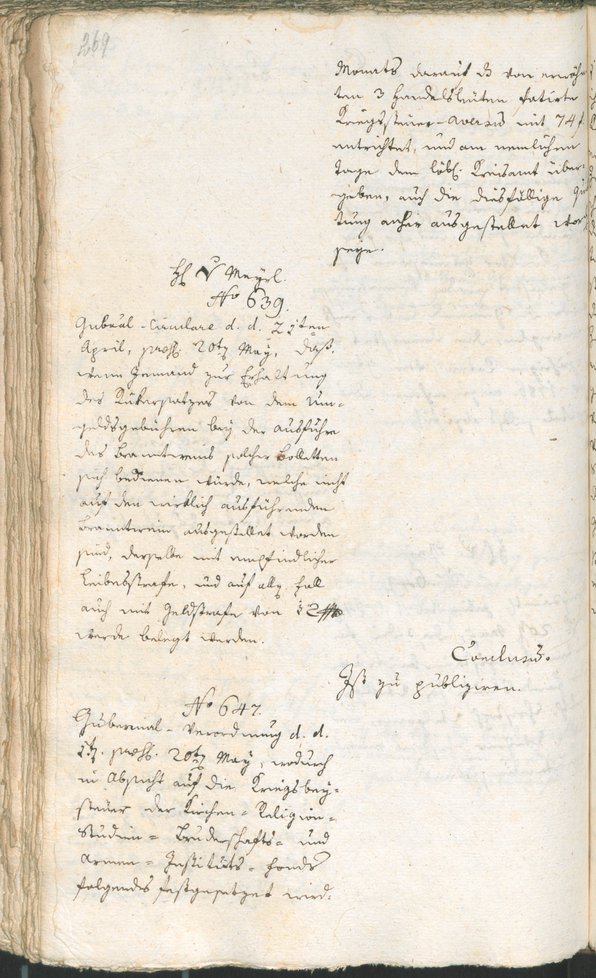 269
Monats darauf d. von erwähn-
ten 3 Handelsleuten fatirte
Kriegssteuer-Aversum mit 74 f
entrichtet, und am nemlichen
Tage dem löbl. Kreisamt über-
geben, auch die diesfällige Quit-
tung anher ausgestellet wor
seye.
H. v Meyrl.
No 639.
Gubral-Circulare d. d. 21ten
April, praes. 20ten May, daß,
wenn Jemand zur Erhaltung
des Rükersatzes von dem Um-
geldsgebühren bey der Ausfuhre
des Branntweins solcher Bolletten
sich bedienen würde, welche nicht
auf den wirklich ausführenden
Branntwein ausgestellet worden
sind, derselbe mit empfindlicher
Leibesstrafe, und auf allen Fall
auch mit Geldstrafe von 12
werde belegt werden.
Conclusum.
Ist zu publiziren.
No 647.
Gubernial-Verordnung d. d.
praes. 20ten May, wodurch
in Absicht auf die Kriegsbey-
steuer der Kirchen- Religion-
Studien- Bruderschafts- und
Armen- Instituts- Fonds
folgendes festgesetzet wird.